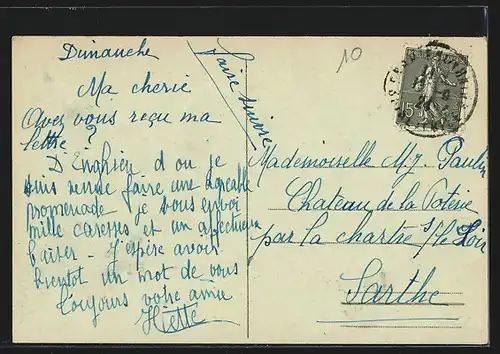 Dimanche
Ma cherie
Avez vous reçu ma
lettre ?
D'Enghien d'ou je
suis venue faire une agreable
promenade je vous envoi
mille caresses et un affectueux
baiser. J'espère avoir
bientot un mot de vous
Toujours votre amie
Faire suivre
10
15
Mademoiselle M J. Paulin
Chateau de la Poterie
par La chartre s/ le Loir
Sarthe